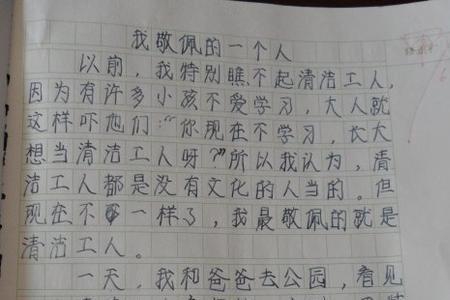 我敬佩的一个人
以前，我特别瞧不起清洁工人，
因为有许多小孩不爱学习，大人就
这样吓他们：“你现在不学习，长大
想当清洁工人呀？”所以我认为，清
洁工人都是没有文化的人当的。但
现在不一样了，我最敬佩的就是
清洁工人。
一天，我和爸爸去公园，看见